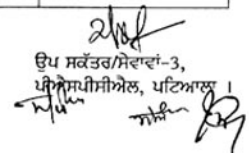 ਉਪ ਸਕੱਤਰ/ਸੇਵਾਵਾਂ-3,
ਪੀਐਸਪੀਸੀਐਲ, ਪਟਿਆਲਾ ।